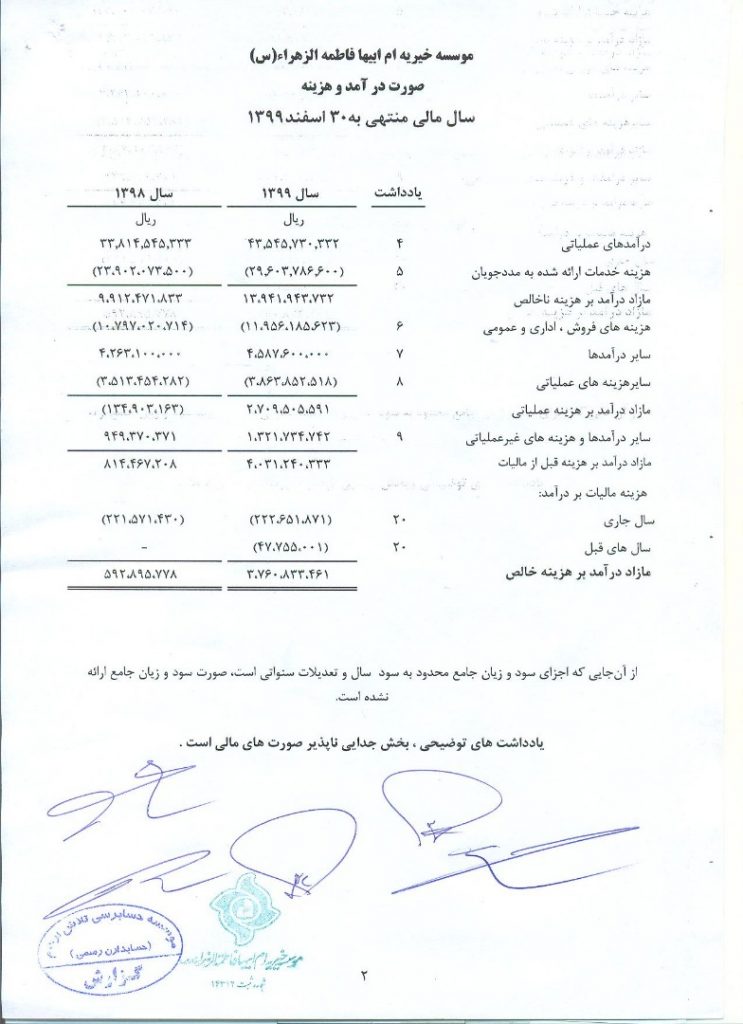 موسسه خیریه ام ابیها فاطمه الزهراء(س)
صورت در آمد و هزینه
سال مالی منتهی به ۳۰ اسفند ۱۳۹۹
یادداشت سال ۱۳۹۹ سال ۱۳۹۸
ریال ریال
درآمدهای عملیاتی ۴ ۴۳,۵۴۵,۷۳۰,۳۳۲ ۳۳,۸۱۴,۵۴۵,۳۳۳
هزینه خدمات ارائه شده به مددجویان ۵ (۲۹,۶۰۳,۷۸۶,۶۰۰) (۲۳,۹۰۲,۰۷۳,۵۰۰)
مازاد درآمد بر هزینه ناخالص ۱۳,۹۴۱,۹۴۳,۷۳۲ ۹,۹۱۲,۴۷۱,۸۳۳
هزینه های فروش ، اداری و عمومی ۶ (۱۱,۹۵۶,۱۸۵,۶۲۳) (۱۰,۷۹۷,۰۲۰,۷۱۴)
سایر درآمدها ۷ ۴,۵۸۷,۶۰۰,۰۰۰ ۴,۲۶۳,۱۰۰,۰۰۰
سایرهزینه های عملیاتی ۸ (۳,۸۶۳,۸۵۲,۵۱۸) (۳,۵۱۳,۴۵۴,۲۸۲)
مازاد درآمد بر هزینه عملیاتی ۲,۷۰۹,۵۰۵,۵۹۱ (۱۳۴,۹۰۳,۱۶۳)
سایر درآمدها و هزینه های غیرعملیاتی ۹ ۱,۳۲۱,۷۳۴,۷۴۲ ۹۴۹,۳۷۰,۳۷۱
مازاد درآمد بر هزینه قبل از مالیات ۴,۰۳۱,۲۴۰,۳۳۳ ۸۱۴,۴۶۷,۲۰۸
هزینه مالیات بر درآمد:
سال جاری ۲۰ (۲۲۲,۶۵۱,۸۷۱) (۲۲۱,۵۷۱,۴۳۰)
سال های قبل ۲۰ (۴۷,۷۵۵,۰۰۱) -
مازاد درآمد بر هزینه خالص ۳,۷۶۰,۸۳۳,۴۶۱ ۵۹۲,۸۹۵,۷۷۸
از آن‌جایی که اجزای سود و زیان جامع محدود به سود سال و تعدیلات سنواتی است، صورت سود و زیان جامع ارائه
نشده است.
یادداشت های توضیحی ، بخش جدایی ناپذیر صورت های مالی است .
موسسه حسابرسی تلاش
(حسابداران رسمی)
گزارش
موسسه خیریه ام ابیها فاطمه الزهراء
شماره ثبت ۱۴۳۱۲
۲